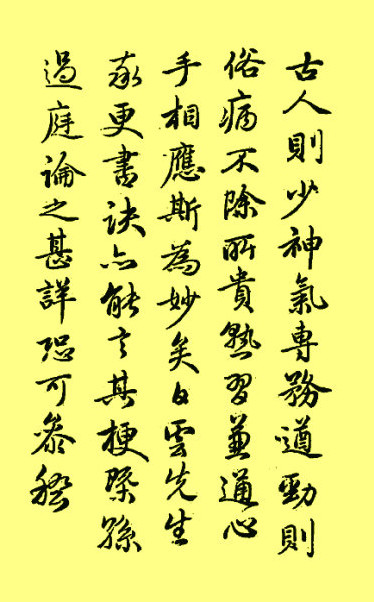 古人則少神氣專務遒勁則
俗病不除所貴熟習兼通心
手相應斯為妙矣白雲先生
率更書訣亦能言其梗槩孫
過庭論之甚詳可參稽